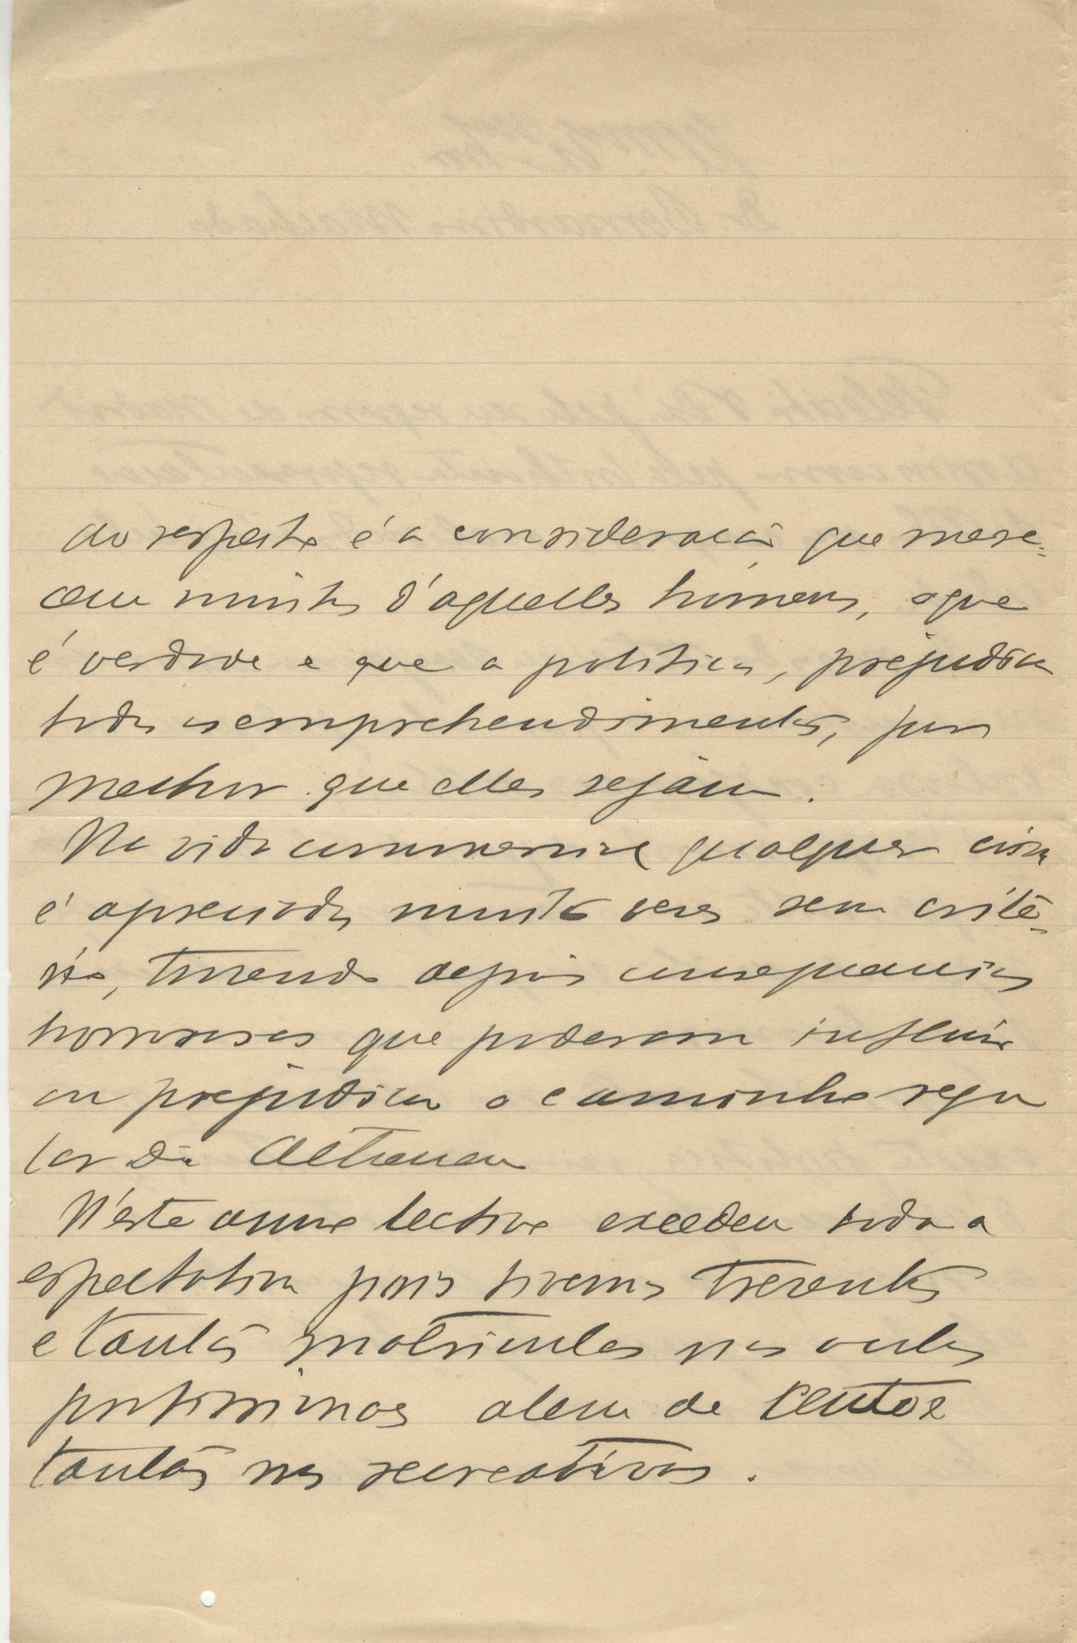 ao respeito é a consideração que mere-
cem muitos d'aquelles hómens, o que
é verdade e que a politica, prejudica
todos os emprehendimentos, por
melhor que elles sejam.
Na vida commercial qualquer coisa
é apreciada muitas veses sem crité-
rio, tomando depois consequencias
horrorosas que poderam influir
ou prejudicar o caminho regu
lar da Atheneu
N'este anno lectivo excedeu toda a
espectativa pois tivemos trezentos
e tantas matriculas nas aulas
 alem de cento e
tantas nas recreativas.